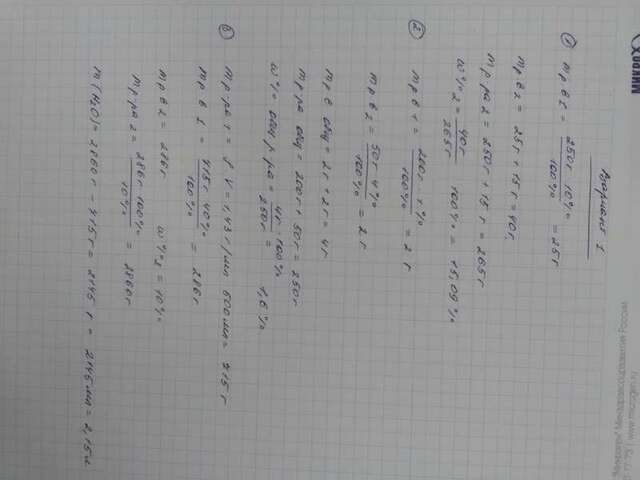 Вариант 1
① m р.в 1 = 250г · 10% / 100% = 25г
m р.в 2 = 25г + 15г = 40г
m р-ра 2 = 250г + 15г = 265г
w% 2 = 40г / 265г 100% = 15,09%
② m р.в 1 = 200г · 1% / 100% = 2г
m р.в 2 = 50г · 4% / 100% = 2г
m р.в общ = 2г + 2г = 4г
m р-ра общ = 200г + 50г = 250г
w% общ р-ра = 4г · 100% / 250г = 1,6%
③ m р-ра 1 = ρ · V = 1,43г/мл 500мл = 715г
m р.в 1 = 715г 40% / 100% = 286г
m р.в 2 = 286г w% 2 = 10%
m р-ра 2 = 286г · 100% / 10% = 2860г
m(H₂O) = 2860г - 715г = 2145г = 2145мл = 2,15л
Минздравсоцразвития России